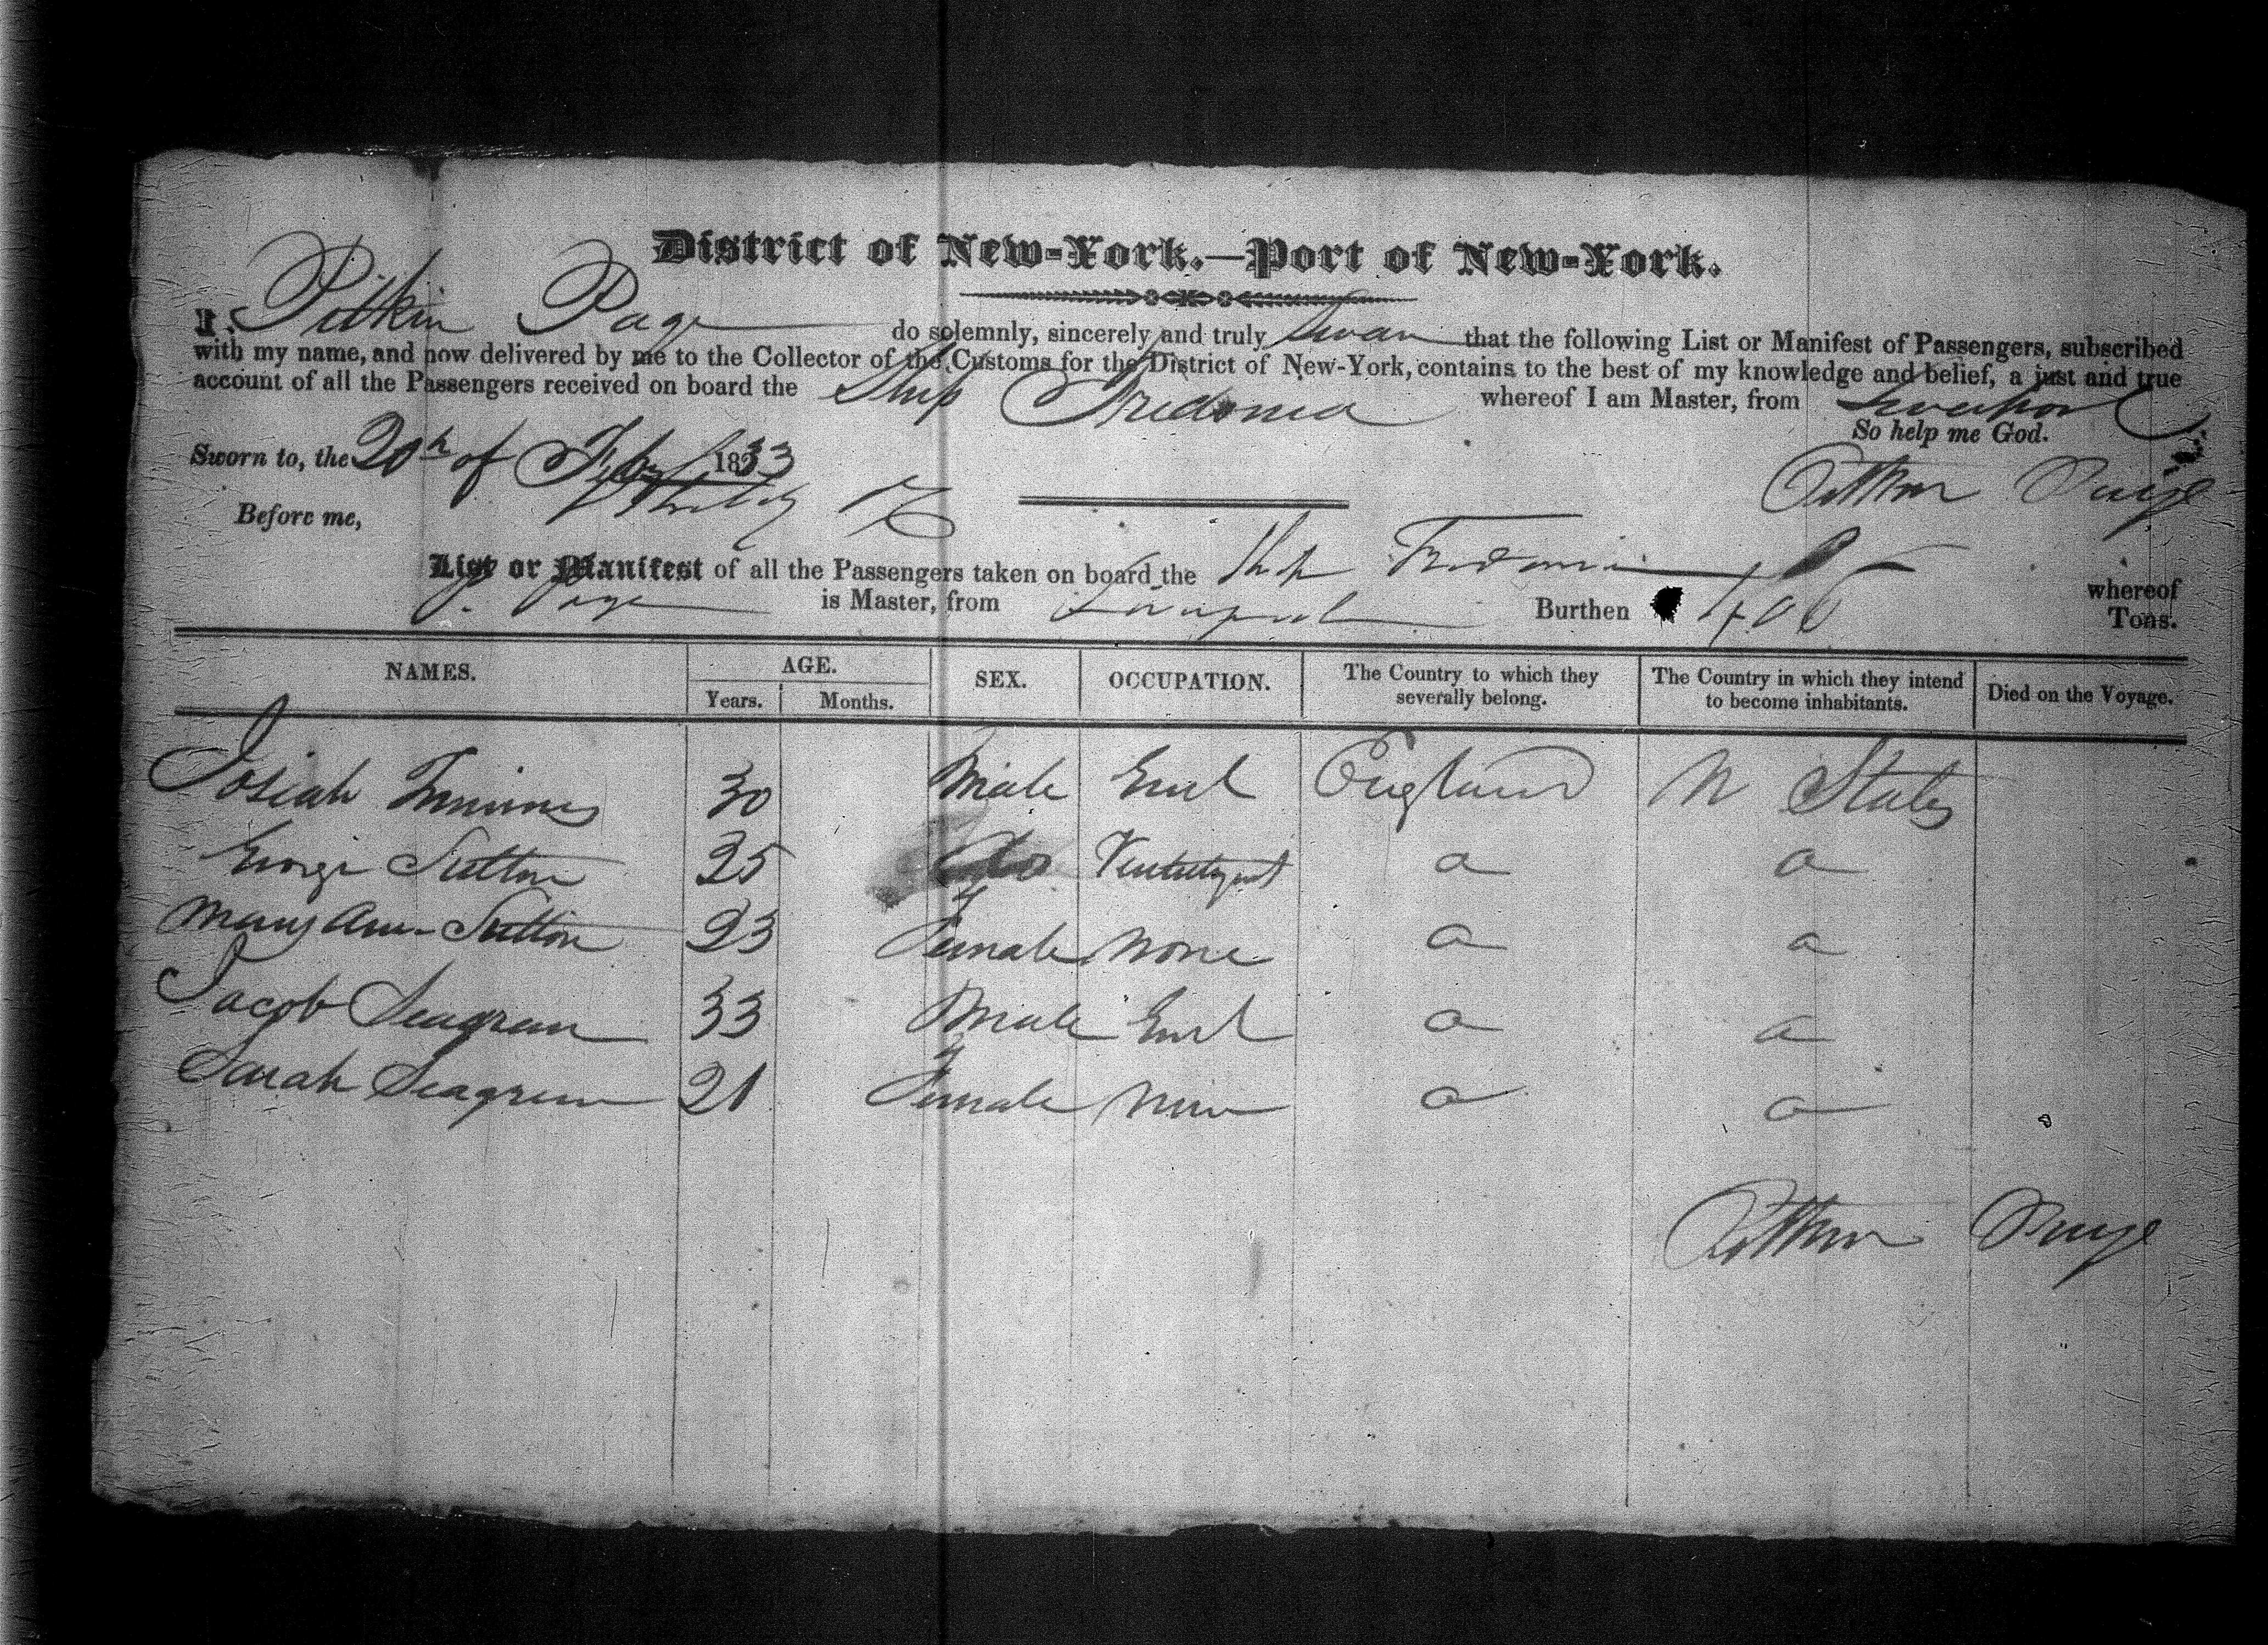 District of New-York.—Port of New-York.
I, Pitkin Page do solemnly, sincerely and truly Swear that the following List or Manifest of Passengers, subscribed
with my name, and now delivered by me to the Collector of the Customs for the District of New-York, contains to the best of my knowledge and belief, a just and true
account of all the Passengers received on board the Ship Fredonia whereof I am Master, from Liverpool
So help me God.
Sworn to, the 20th of Feby 1833
Pitkin Page
Before me,
List or Manifest of all the Passengers taken on board the Ship Fredonia whereof
P. Page is Master, from Liverpool Burthen 406 Tons.
NAMES. AGE. SEX. OCCUPATION. The Country to which they severally belong. The Country in which they intend to become inhabitants. Died on the Voyage.
Years. Months.
Josiah Timmins 30 Male England U States
George Sutton 25 do a a
Mary Ann Sutton 23 Female None a a
Jacob Seagram 33 Male a a
Sarah Seagram 21 Female None a a
Pitkin Page